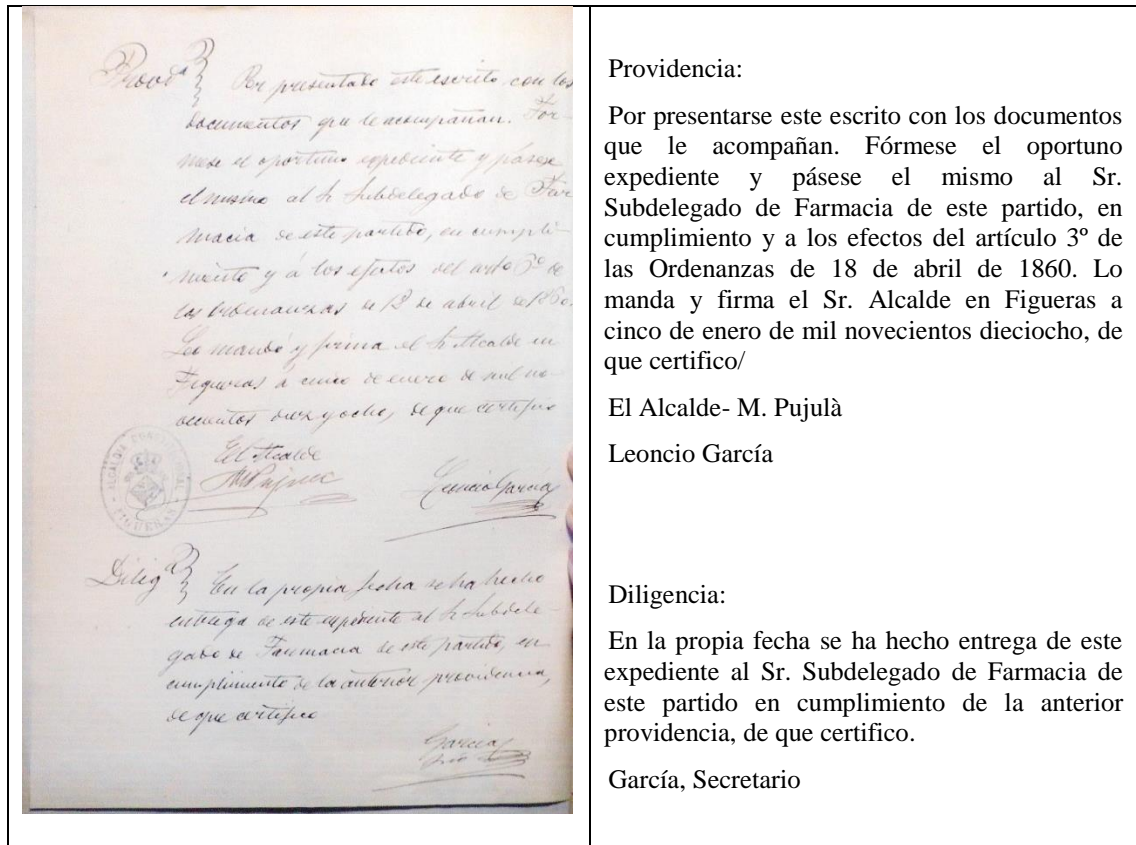 Provdª Por presentado este escrito con los
documentos que le acompañan. For-
mese el oportuno expediente y pásese
el mismo al Sr Subdelegado de Far
macia de este partido, en cumpli-
miento y á los efectos del artº 3º de
las ordenanzas de 18 de abril de 1860.
Lo mandó y firma el Sr Alcalde en
Figueras á cinco de enero de mil no-
vecientos diez y ocho, de que certifico
El Alcalde
M Pujulá
Leoncio García
ALCALDÍA CONSTITUCIONAL
FIGUERAS
Diligª En la propia fecha se ha hecho
entrega de este expediente al Sr Subdele-
gado de Farmacia de este partido, en
cumplimiento de la anterior providencia,
de que certifico
García
Srio
Providencia:
Por presentarse este escrito con los documentos
que le acompañan. Fórmese el oportuno
expediente y pásese el mismo al Sr.
Subdelegado de Farmacia de este partido, en
cumplimiento y a los efectos del artículo 3º de
las Ordenanzas de 18 de abril de 1860. Lo
manda y firma el Sr. Alcalde en Figueras a
cinco de enero de mil novecientos dieciocho, de
que certifico/
El Alcalde- M. Pujulà
Leoncio García
Diligencia:
En la propia fecha se ha hecho entrega de este
expediente al Sr. Subdelegado de Farmacia de
este partido en cumplimiento de la anterior
providencia, de que certifico.
García, Secretario